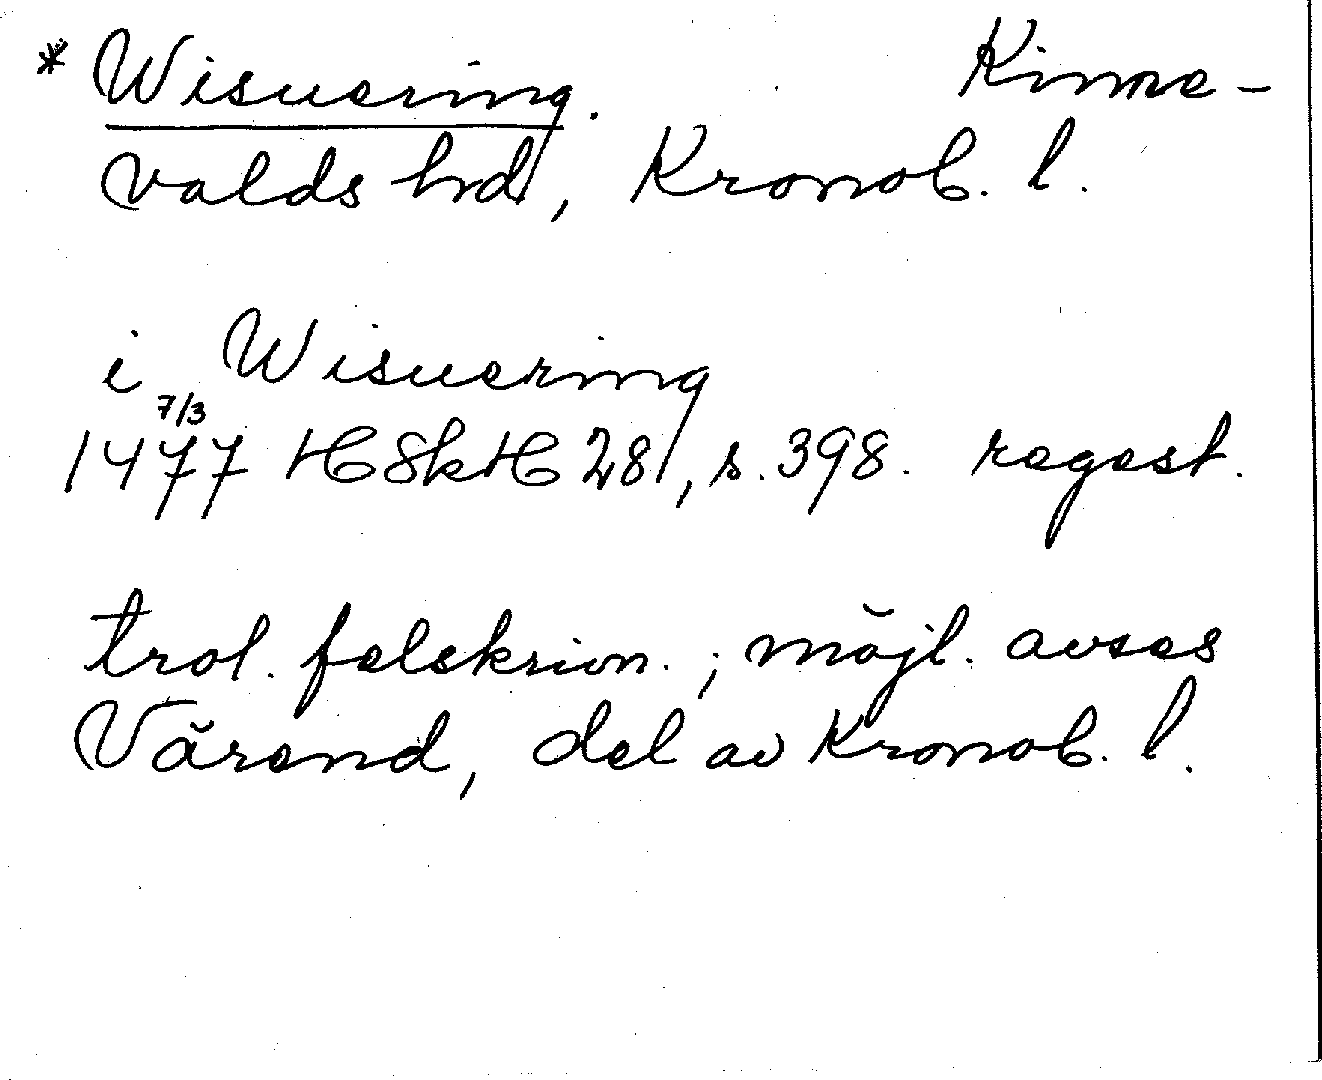 * Wisuering. Kinne-
valds hd, Kronob. l.
i Wisuering
1477 7/3 HSkH 28, s. 398. regest.
trol. felskrivn.; möjl. avses
Värend, del av Kronob. l.